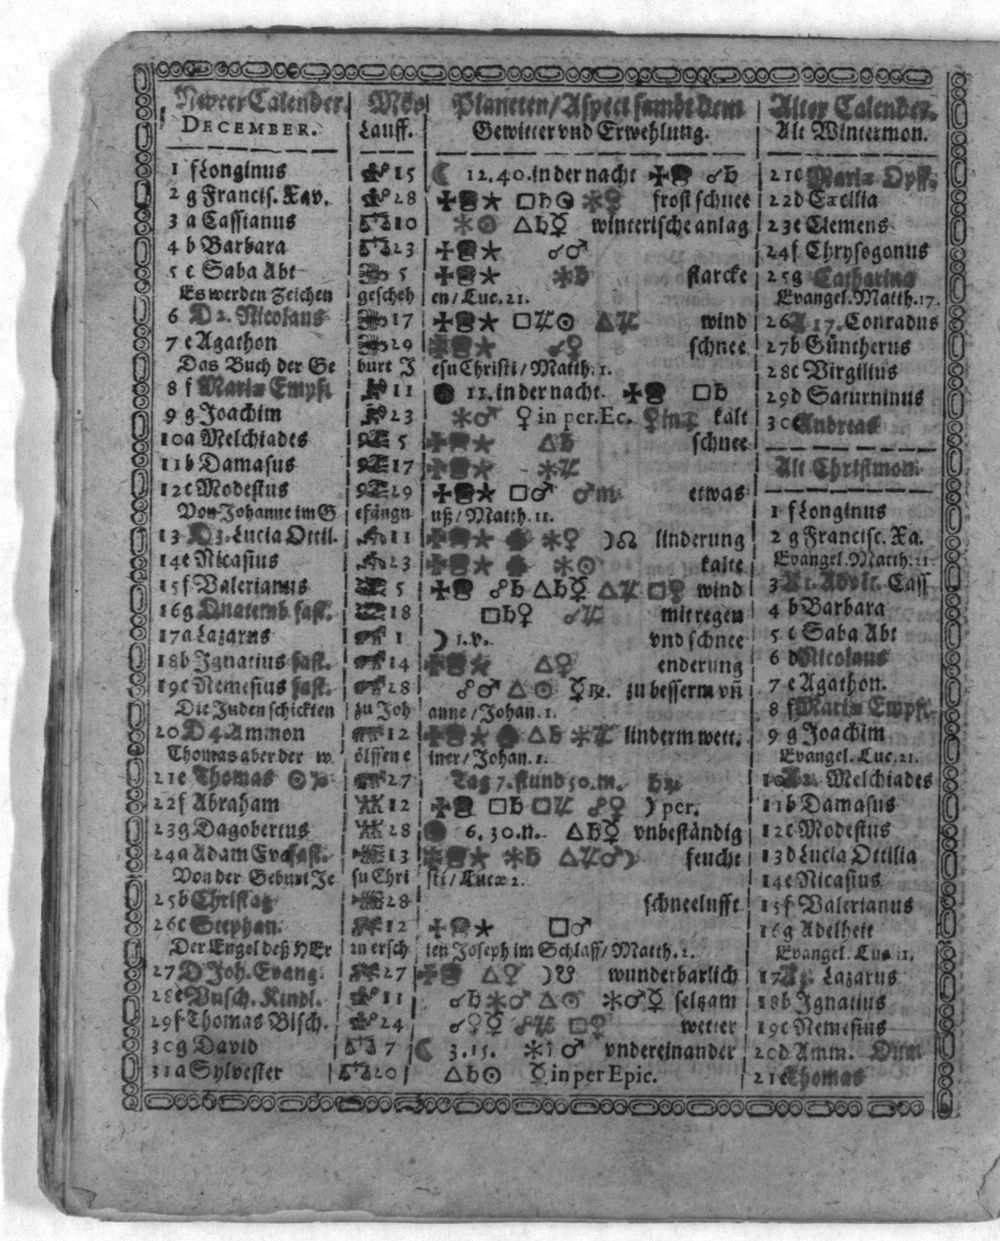 Newer Calender. Mõs Planeten/Aspect sambt dem Alter Calender.
DECEMBER. Lauff. Gewitter vnd Erwehlung. Alt Wintermon.
1 f Longinus 15 ☾ 12.40. in der nacht ☌♄ 21c Mariæ Opff.
2 g Francisc. Xav. 28 □♄☉ ✶♀ frost schnee 22d Cæcilia
3 a Cassianus 10 ✶☉ △♄☿ winterische anlag 23e Clemens
4 b Barbara 23 ☌♂ 24f Chrysogonus
5 c Saba Abt 5 ✶♄ starcke 25g Catharina
Es werden Zeichen gescheh en/Luc. 21. Evangel. Matth. 17.
6 D 2. Nicolaus 17 □♃☉ △♃ wind 26A 17. Conradus
7 e Agathon 29 ☌♀ schnee 27b Güntherus
Das Buch der Ge burt J esu Christi/Matth. 1. 28c Virgilius
8 f Mariæ Empf. 11 11. in der nacht. □♄ 29d Saturninus
9 g Joachim 23 ✶♂ ♀ in per. Ec. kalt 30 Andreas
10a Melchiades 5 △♄ schnee
11b Damasus 17 ✶♃ Alt Christmon.
12c Modestus 29 □♂ ♂♏ etwas
Von Johanne im G efängn uß/Matth. 11. 1 f Longinus
13 D 3. Lucia Ottil. 11 ✶♀ ☽☊ linderung 2 g Francisc. Xa.
14e Nicasius 23 ✶☉ kalte Evangel. Matth. 21.
15f Valerianus 5 ☍♄ △♄☿ △♃ □☿ wind 3 Ar. Advēt. Cass
16g Quatemb. fast. 18 □♄♀ ☌♃ mit regen 4 b Barbara
17a Lazarus 1 ☽ 1. v. vnd schnee 5 c Saba Abt
18b Ignatius fast. 14 △♀ enderung 6 d Nicolaus
19c Nemesius fast. 28 ☍♂ △☉ ☿℞. zu besserm vñ 7 e Agathon.
Die Juden schickten zu Joh anne/Johan. 1. 8 f Mariæ Empf.
20D 4. Ammon 12 △♄ ✶♃ linderm wett. 9 g Joachim
Thomas aber der w. ölffen e iner/Johan. 1. Evangel. Luc. 21.
21e Thomas ☉♑ 27 Tag 7. stund 50. m. 10A 2. Melchiades
22f Abraham 12 □♄ □♃ ☍♀ ☽ per. 11b Damasus
23g Dagobertus 28 6. 30. n. △♄☿ vnbeständig 12c Modestus
24a Adam Eva fast. 13 ✶♄ △♃♂☽ feucht 13d Lucia Ottilia
Von der Geburt Je su Chri sti/Lucæ 2. 14e Nicasius
25b Christag 28 schneelufft 15f Valerianus
26c Stephan. 12 □♂ 16g Adelheit
Der Engel deß HEr zu ersch ien Joseph im Schlaff/Matth. 2. Evangel. Luc. 11.
27D Joh. Evang. 27 △♀ ☽☋ wunderbarlich 17A 3. Lazarus
28e Vnsch. Kindl. 11 ☌♄ ✶♂ △☉ ✶♂☿ selzam 18b Ignatius
29f Thomas Bisch. 24 ☌♀☿ ☍♃ □☿ wetter 19c Nemesius
30g David 7 ☾ 3. 15. ♂ vndereinander 20d Amm.
31a Sylvester 20 △♄☉ ☿ in per Epic. 21e Thomas